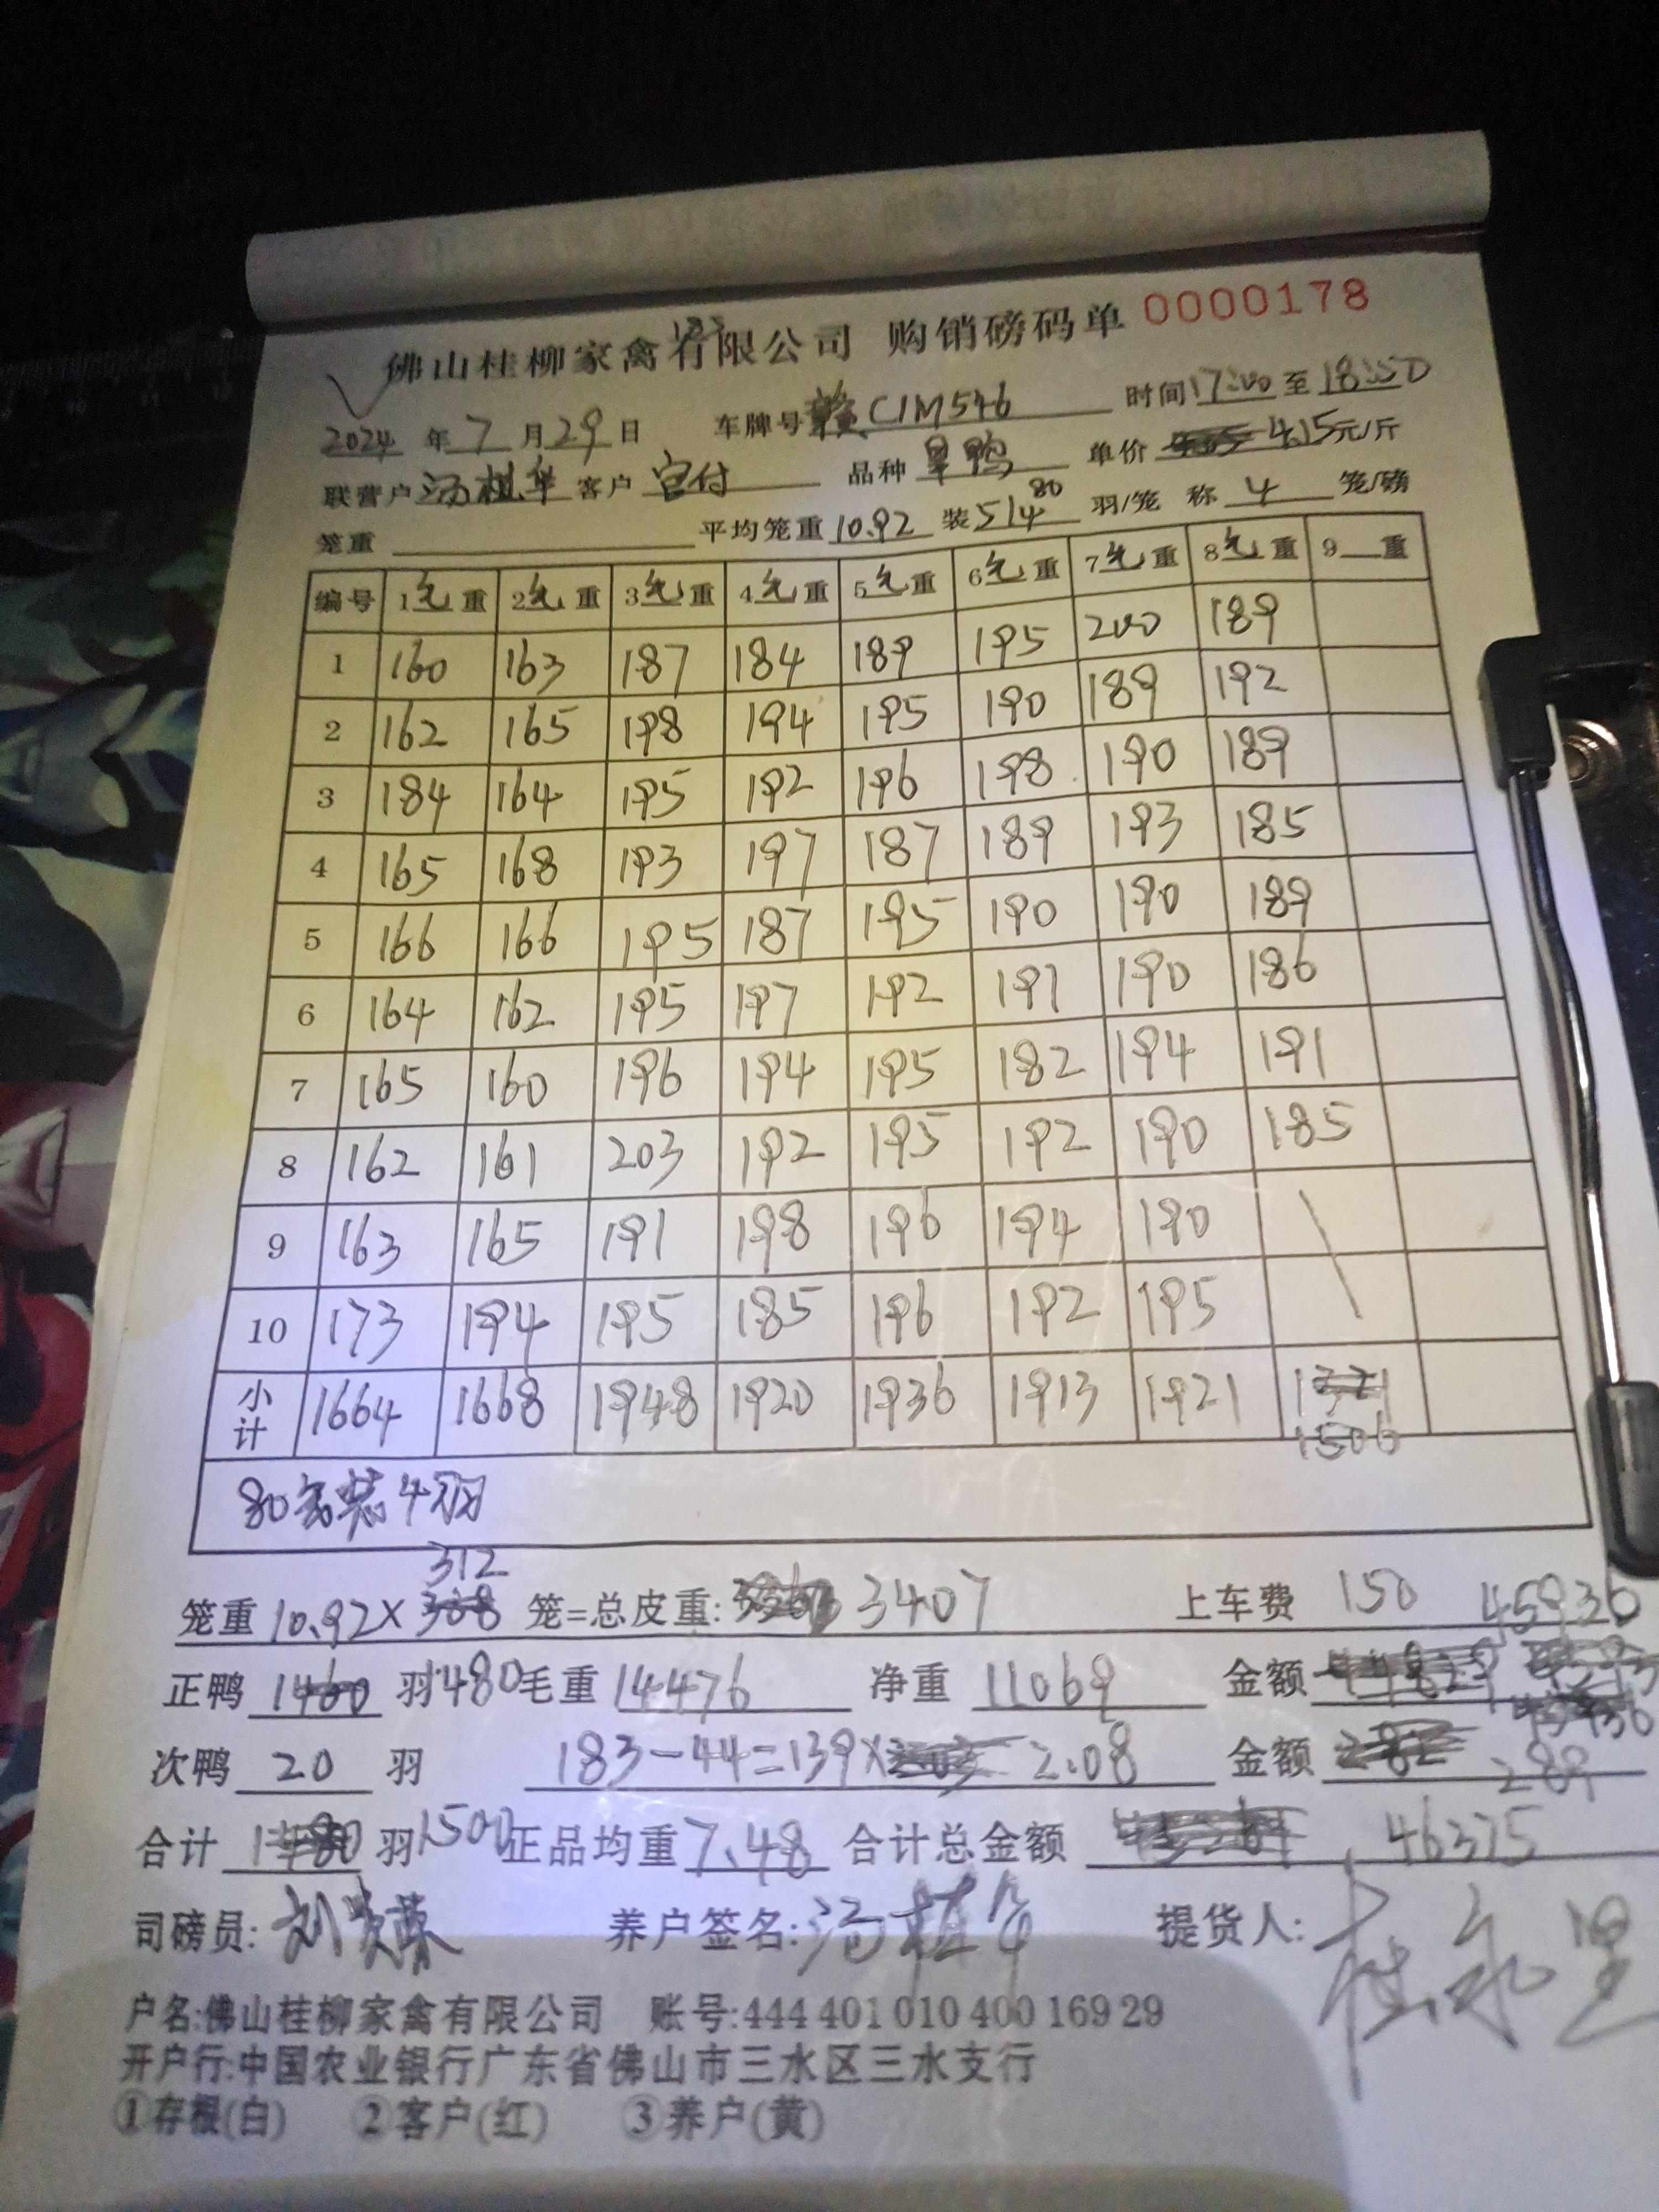 佛山桂柳家禽有限公司 购销磅码单 0000178
2024 年 7 月 29 日 车牌号 赣C1M546 时间 17:00 至 18:50
联营户 汤桂华 客户 品种 单价 4.15 元/斤
笼重 平均笼重 10.92 装 5 14 80 羽/笼 称 4 笼/磅
编号 1 毛 重 2 毛 重 3 毛 重 4 毛 重 5 毛 重 6 毛 重 7 毛 重 8 毛 重 9 重
1 160 163 187 184 189 195 200 189
2 162 165 198 194 195 190 189 192
3 184 164 195 192 196 198 190 189
4 165 168 193 197 187 189 193 185
5 166 166 195 187 195 190 190 189
6 164 162 195 197 192 191 190 186
7 165 160 196 194 195 182 194 191
8 162 161 203 192 195 192 190 185
9 163 165 191 198 196 194 190
10 173 194 195 185 196 192 195
小计 1664 1668 1948 1920 1936 1913 1921 1506
80 装 4 羽
312
笼重 10.92 × 笼=总皮重: 3407 上车费 150 45936
正鸭 羽 1480 毛重 14476 净重 11069 金额
次鸭 20 羽 183-44=139× 2.08 金额 289
合计 羽 1500 正品均重 7.48 合计总金额 46375
司磅员: 养户签名: 汤桂华 提货人:
户名:佛山桂柳家禽有限公司 账号:444 401 010 400 169 29
开户行:中国农业银行广东省佛山市三水区三水支行
①存根(白) ②客户(红) ③养户(黄)